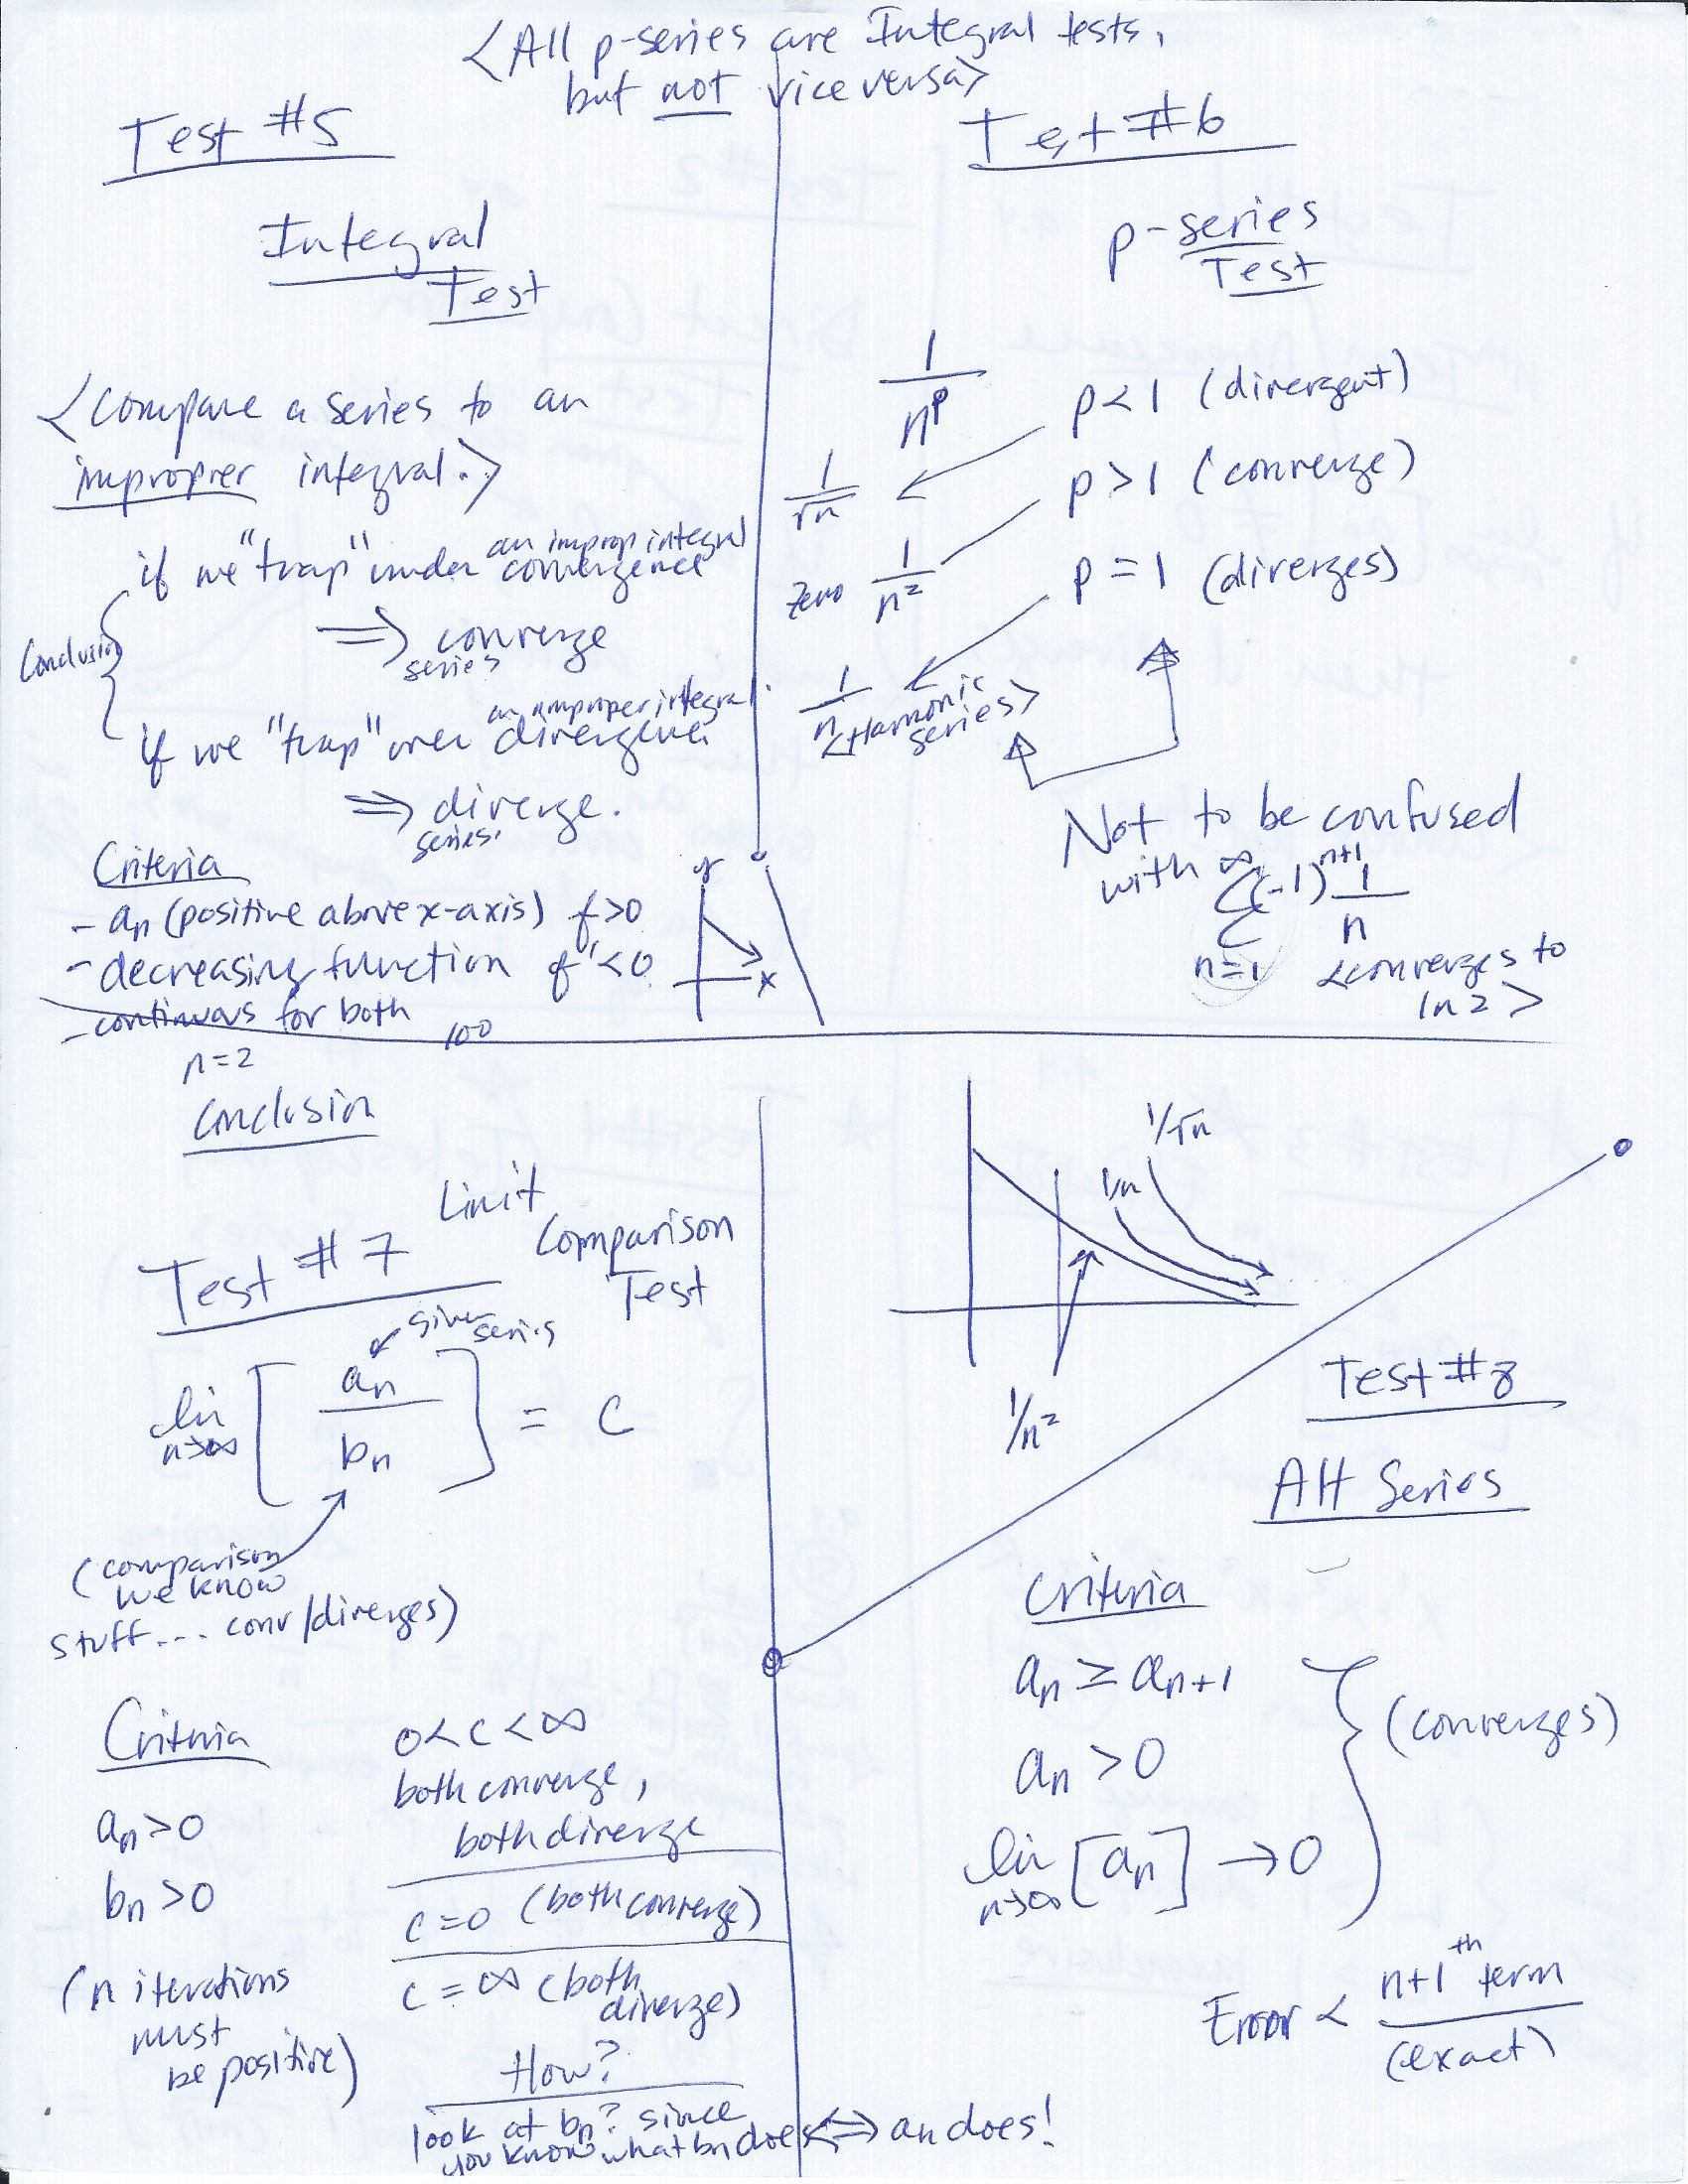 <All p-series are Integral tests,
but not vice versa>
Test #5
Integral
Test
<Compare a series to an
improprer integral.>
if we "trap" under an improp integral
convergence
⇒ converge
series
Conclusion
if we "trap" over an improper integral
divergence.
⇒ diverge.
series.
Criteria
- an (positive above x-axis) f>0
- decreasing function f'<0
- continuous for both
y
x
n=2
100
Conclusion
Test #6
p-series
Test
1/n^p
p<1 (divergent)
1/√n
p>1 (converge)
zero 1/n²
p=1 (diverges)
1/n
<Harmonic
series>
Not to be confused
with ∞
Σ(-1)^(n+1) 1/n
n=1
<converges to
ln 2>
Test #7
Limit
Comparison
Test
given series
lim n→∞ [an/bn] = C
(comparison
we know
stuff... conv/diverges)
Criteria
an>0
bn>0
(n iterations
must
be positive)
0<c<∞
both converge,
both diverge
c=0 (both converge)
c=∞ (both
diverge)
How?
look at bn? since
you know what bn does <=> an does!
1/√n
1/n
1/n²
Test #8
Alt Series
Criteria
an ≥ an+1
an > 0
(converges)
lim n→∞ [an] → 0
Error < n+1th term
(exact)